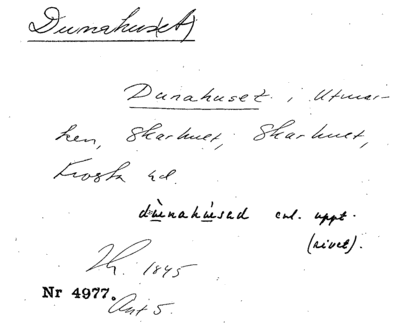 Dunahuset
Dunahuset i Utmar-
ken, Skarhult, Skarhult,
Frosta hd.
dùnahúsad enl. uppt.
(rivet).
Th. 1845
Nr 4977.
Ant 5.